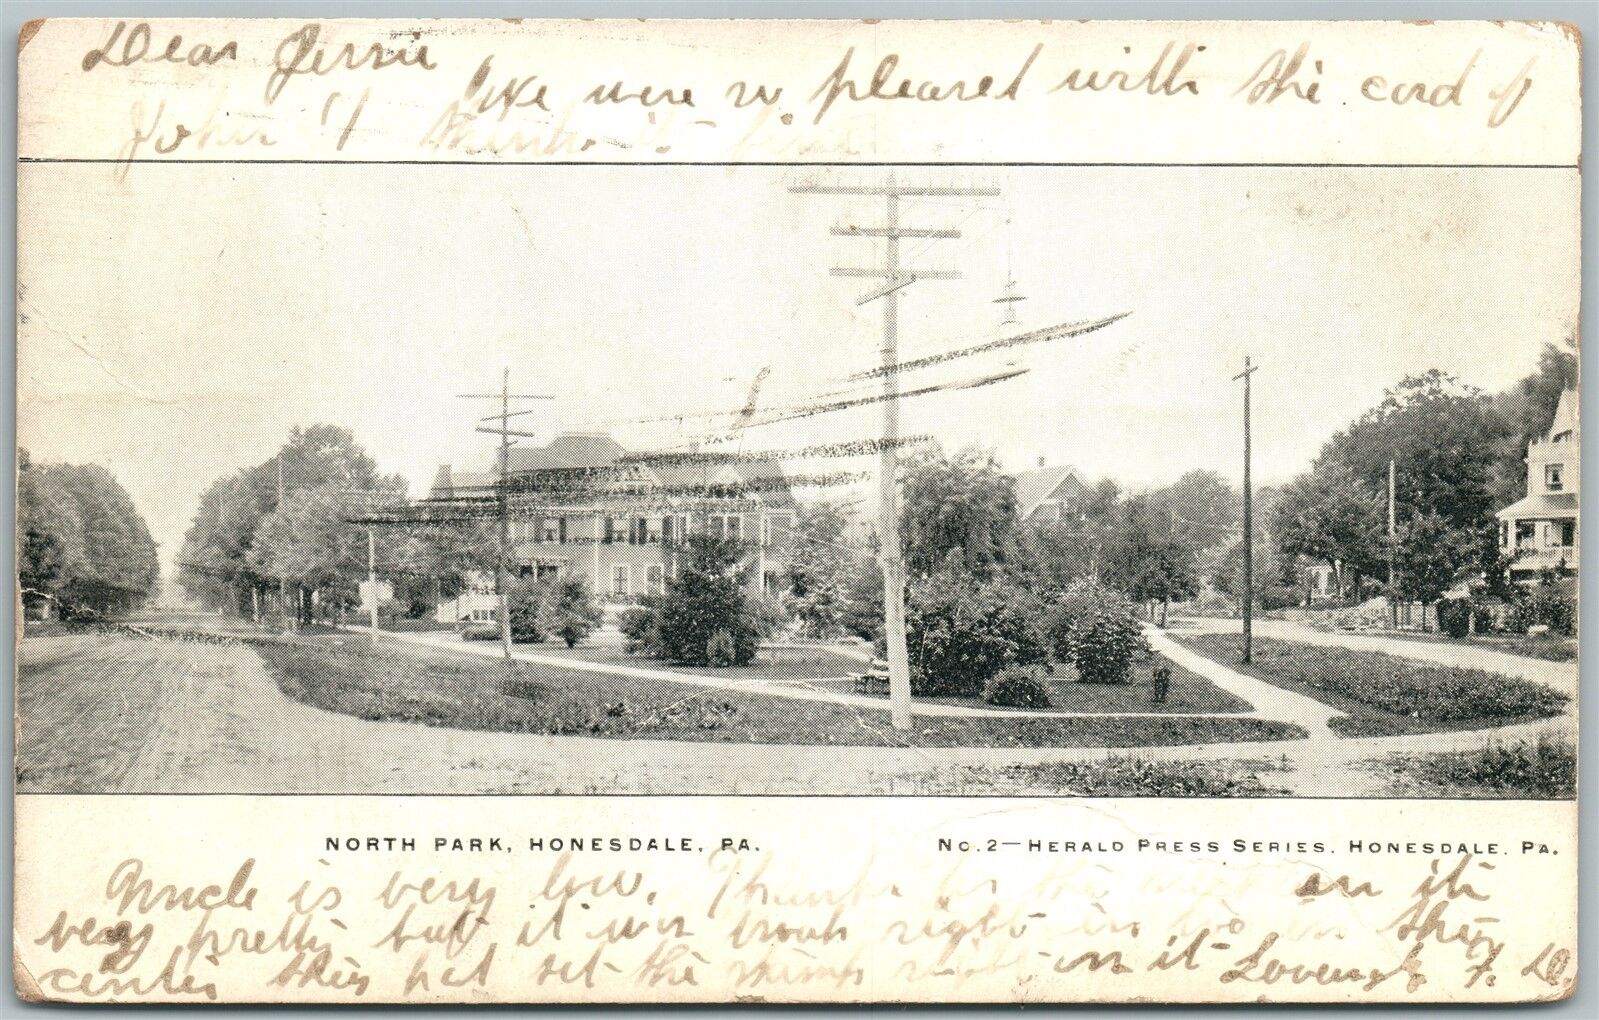 Dear Jessie
We were so pleased with the card of
John I think it fine
NORTH PARK, HONESDALE, PA.
No. 2—HERALD PRESS SERIES, HONESDALE, PA.
Uncle is very low. Thanks for the on it
very pretty but it was right in two in the
center they had set the stamp right on it Lovingly F. D.